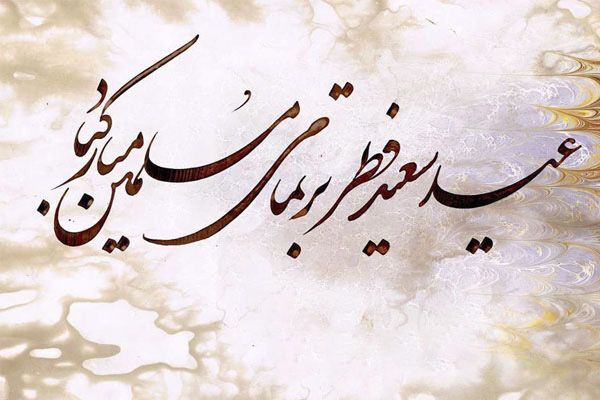 عید سعید فطر بر تمامی مسلمین مبارکباد